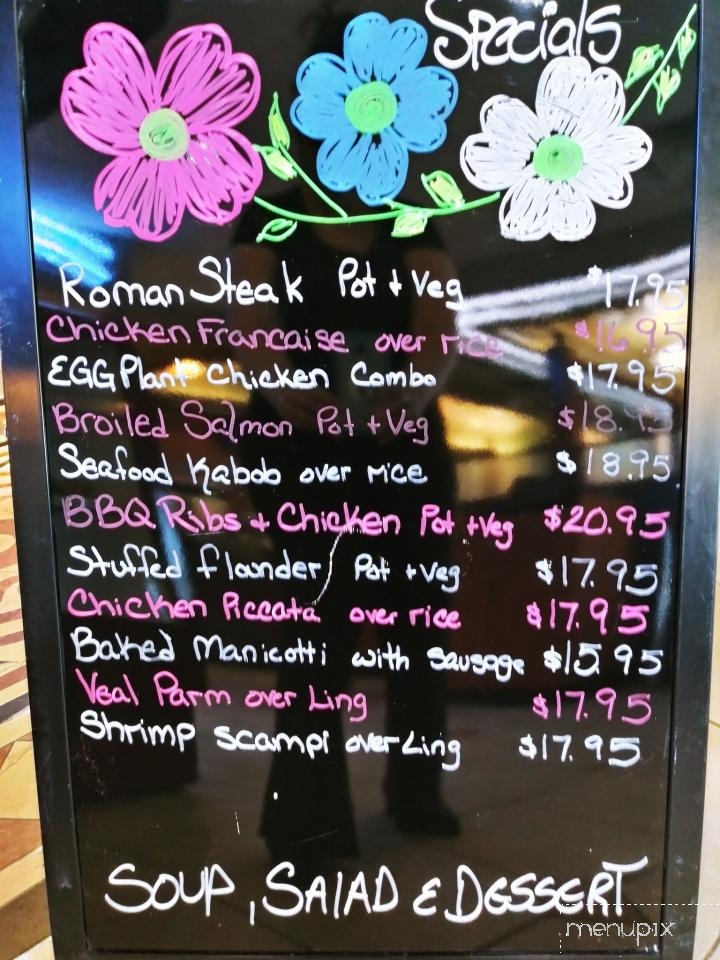 Specials
Roman Steak Pot + Veg $17.95
Chicken Francaise over rice $16.95
EGG Plant Chicken Combo $17.95
Broiled Salmon Pot + Veg $18.95
Seafood Kabob over rice $18.95
BBQ Ribs + Chicken Pot + Veg $20.95
Stuffed flounder Pot + Veg $17.95
Chicken Piccata over rice $17.95
Baked Manicotti with sausage $15.95
Veal Parm over Ling $17.95
Shrimp scampi over Ling $17.95
SOUP, SALAD & DESSERT
menupix